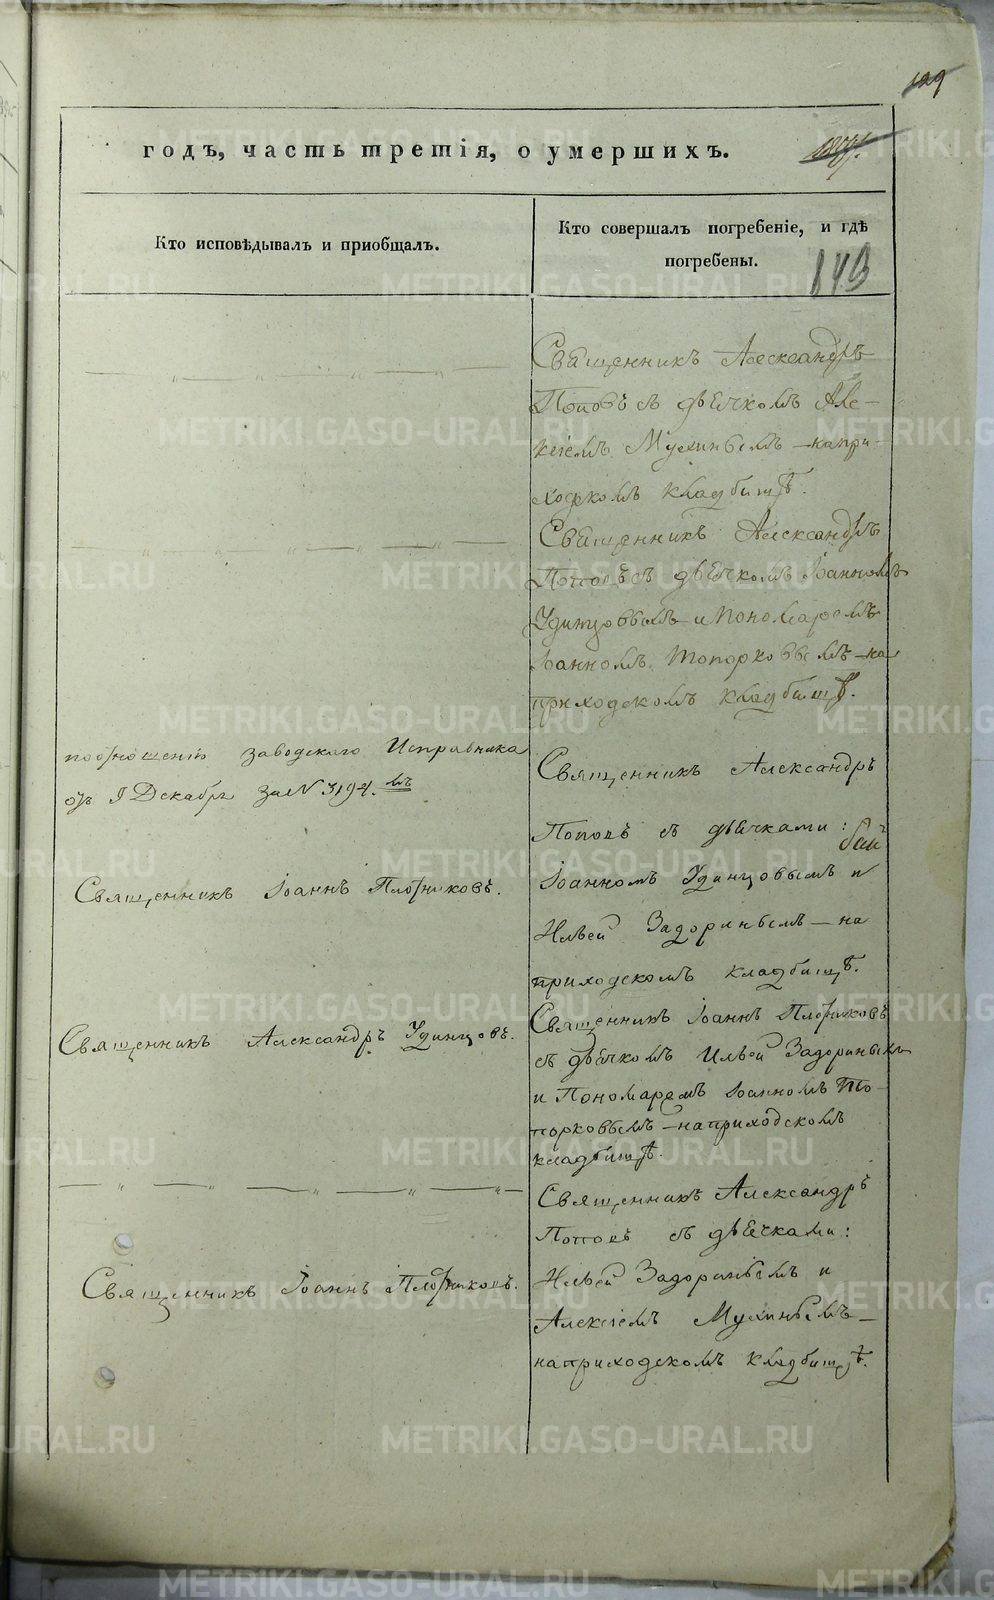 129
годъ, часть третія, о умершихъ.
Кто исповѣдывалъ и приобщалъ.
Кто совершалъ погребеніе, и гдѣ
погребены.
143
Священникъ Александръ
Поповъ съ дьячкомъ Але-
ксіемъ Мухинымъ – на при-
ходскомъ кладбищѣ.
Священникъ Александръ
Поповъ съ дьячкомъ Іоанномъ
Удинцовымъ и Пономаремъ
Іоанномъ Топорковымъ – на
приходскомъ кладбищѣ.
по отношенію заводскаго Исправника
отъ 9 Декабря за № 3194.мъ
Священникъ Александръ
Поповъ съ дьячками:
Священникъ Іоаннъ Плотниковъ.
Іоанномъ Удинцовымъ и
Ильей Задоринымъ – на
приходскомъ кладбищѣ.
Священникъ Александръ Удинцовъ.
Священникъ Іоаннъ Плотниковъ
съ дьячкомъ Ильей Задоринымъ
и Пономаремъ Іоанномъ То-
порковымъ – на приходскомъ
кладбищѣ.
Священникъ Александръ
Поповъ съ дьячками:
Священникъ Іоаннъ Плотниковъ.
Ильей Задоринымъ и
Алексіемъ Мухинымъ –
на приходскомъ кладбищѣ.
METRIKI.GASO-URAL.RU